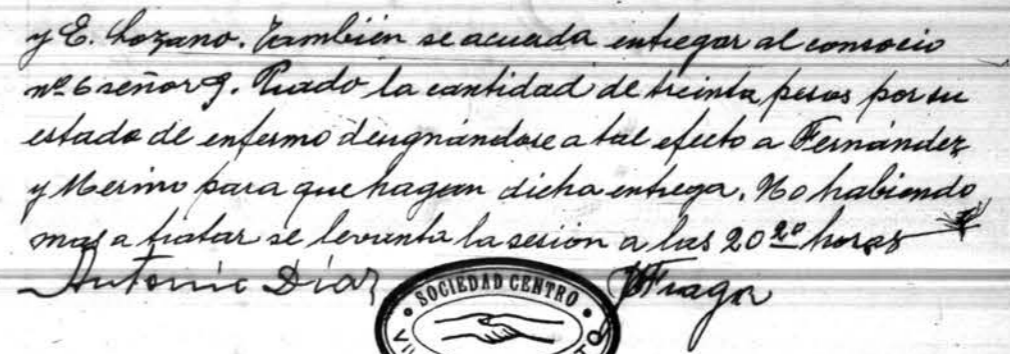 y E. Lozano. También se acuerda entregar al consocio
nº 6 señor J. Prado la cantidad de treinta pesos por su
estado de enfermo designándose a tal efecto a Fernández
y Merino para que hagan dicha entrega. No habiendo
mas a tratar se levanta la sesión a las 20 20 horas
Antonio Díaz
SOCIEDAD CENTRO
JFraga